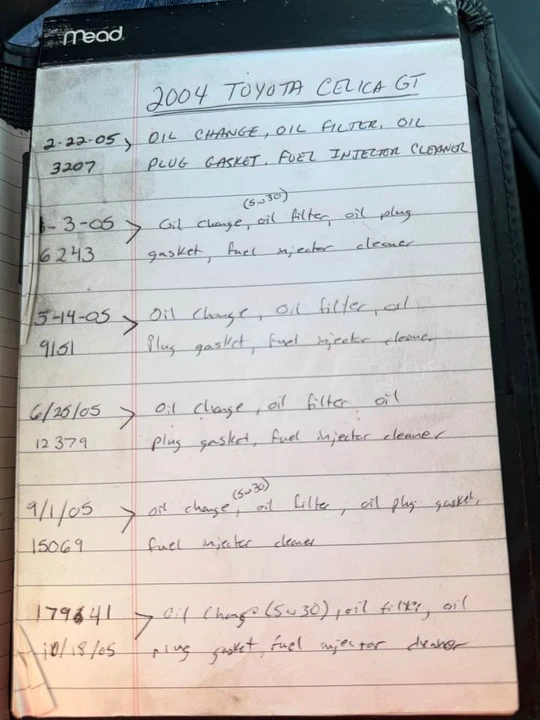 Mead
2004 TOYOTA CELICA GT
2-22-05 > OIL CHANGE, OIL FILTER, OIL
3207 PLUG GASKET. FUEL INJECTOR CLEANOR
(5w30)
-3-05 > Oil change, oil filter, oil plug
6243 gasket, fuel injector cleaner
5-14-05 > Oil change, oil filter, oil
9151 Plug gasket, fuel injector cleaner
6/25/05 > oil change, oil filter oil
12379 plug gasket, fuel injector cleaner
(5w30)
9/1/05 > oil change, oil filter, oil plug gasket,
15069 fuel injector cleaner
179641 > Oil change (5w30), oil filter, oil
10/18/05 plug gasket, fuel injector cleaner